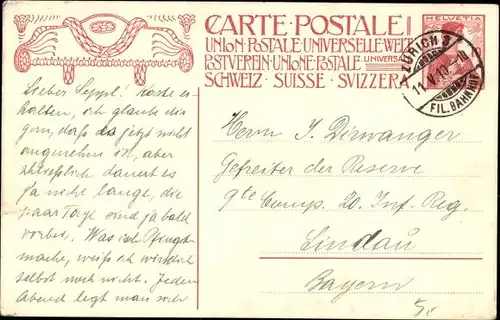 CARTE·POSTALE
UNION·POSTALE UNIVERSELLE·WELT
POSTVEREIN·UNIONE·POSTALE·UNIVERSALE
SCHWEIZ·SUISSE·SVIZZERA
HELVETIA
ZÜRICH 3
11.V.10.-10
FIL. BAHNHOF
Lieber Seppl! Karte er-
halten, ich glaube dir
gern, daß da jetzt nicht
angenehm ist, aber
schließlich dauert es
ja nicht lange, die
paar Tage sind ja bald
vorbei. Was ich Pfingst.
mache, weiß ich wirklich
selbst noch nicht. Jeden
Abend legt man sich
Herrn J. Dirwanger
Gefreiter der Reserve
9te Comp. 20. Inf. Reg.
Lindau
Bayern
5.-